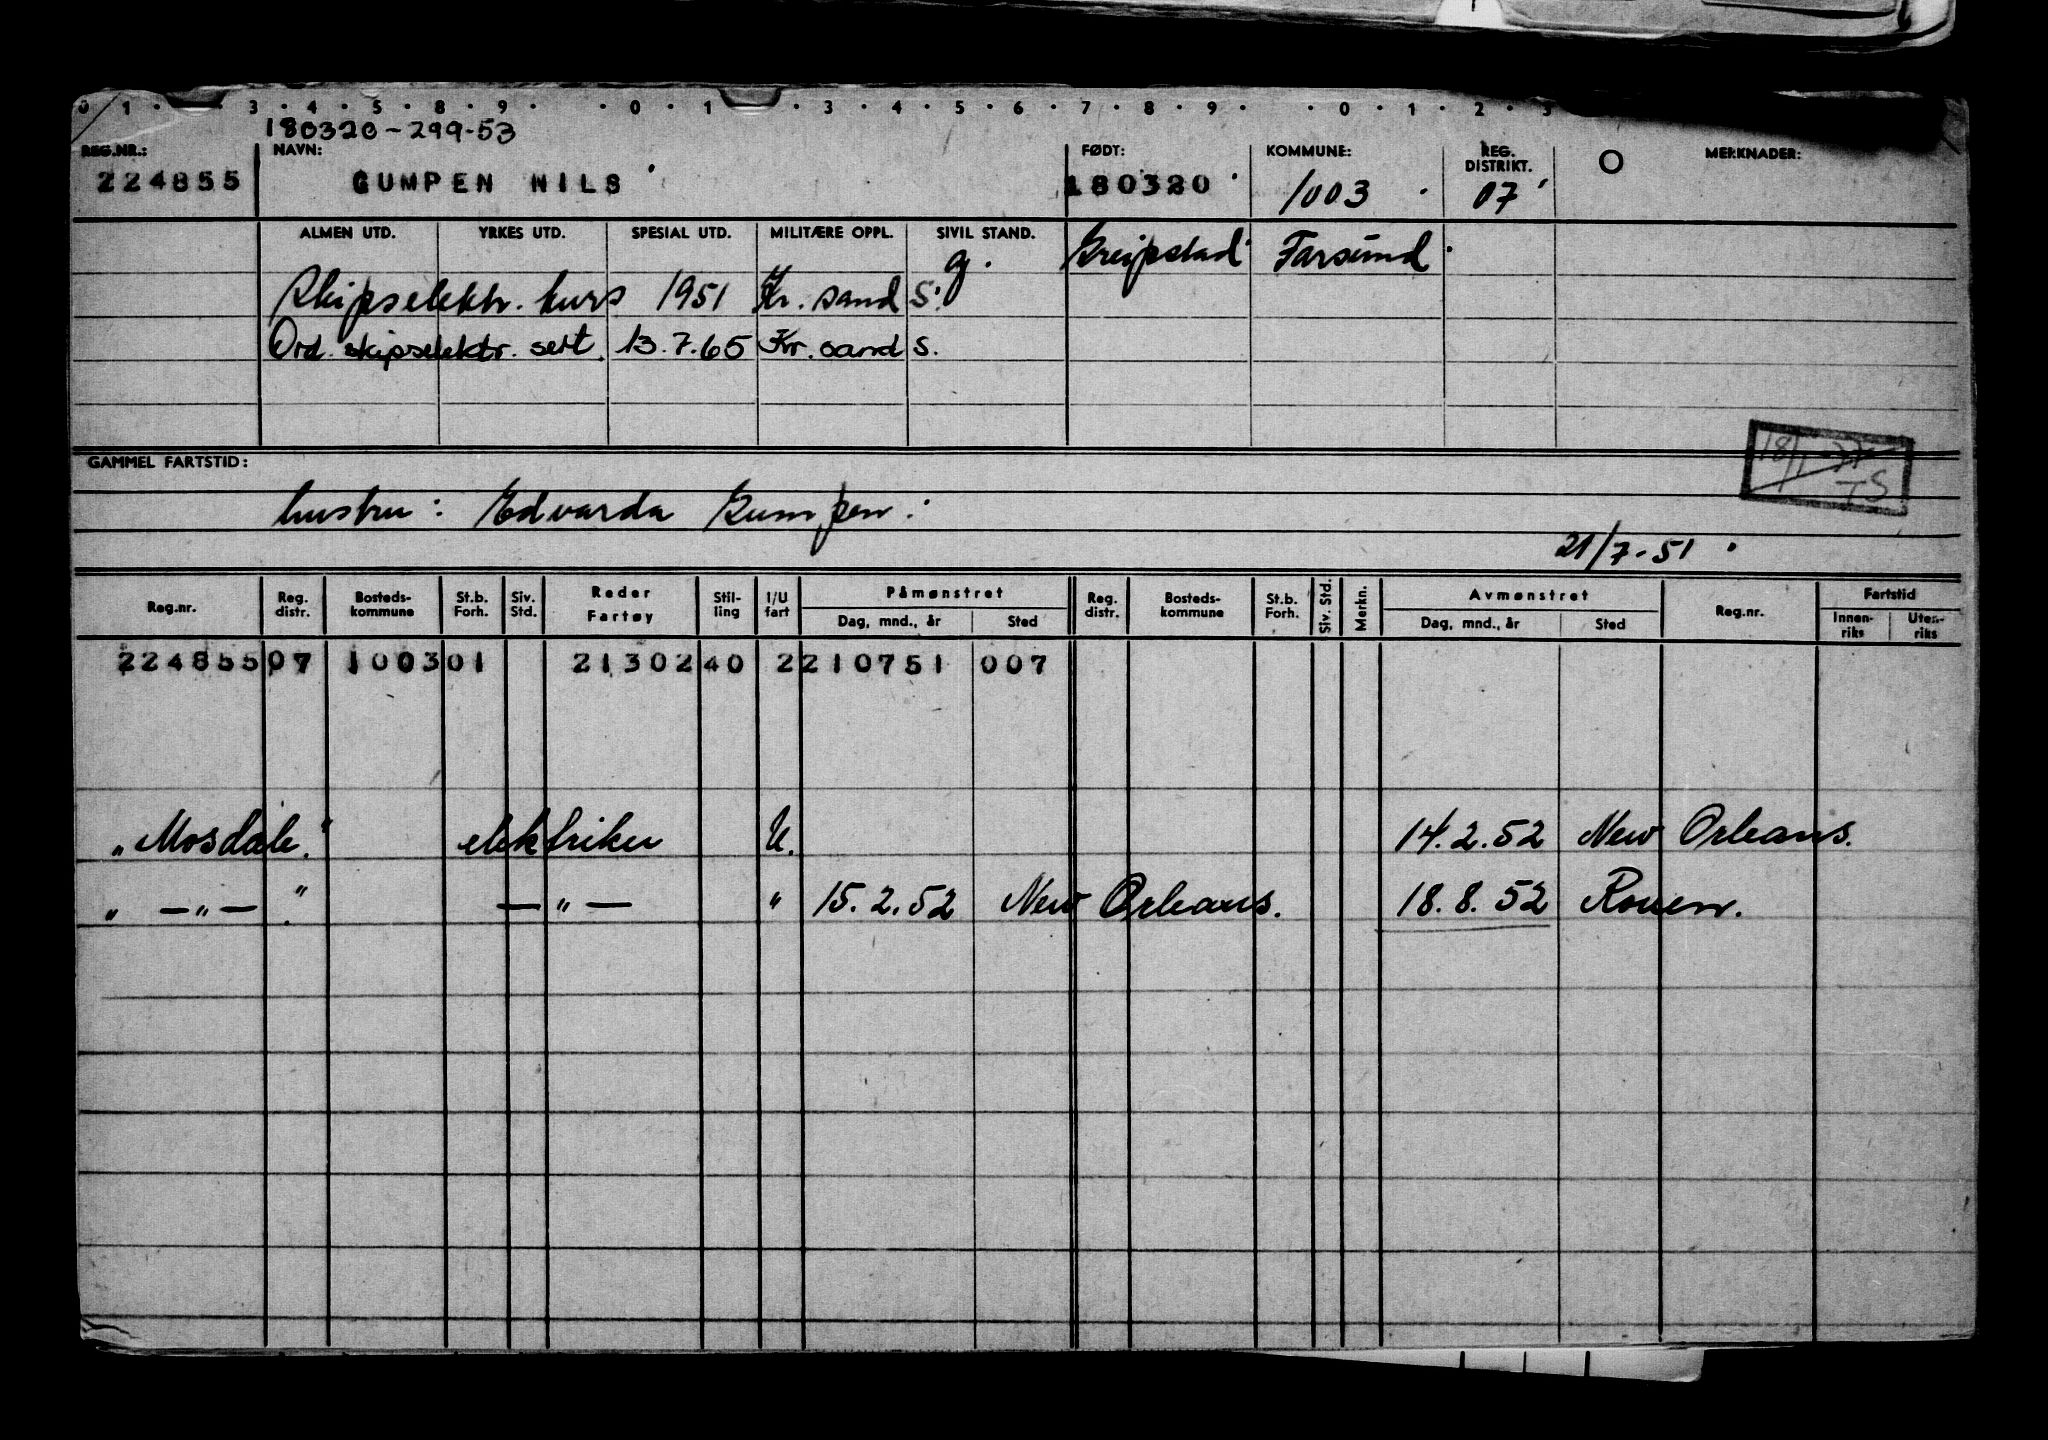 0 1 · 3 · 4 · 5 · 8 · 9 · · 0 · 1 · 3 · 4 · 5 · 6 · 7 · 8 · 9 · · 0 · 1 · 2 · 3
180320-299-53
REG.NR.: NAVN: FØDT: KOMMUNE: REG. DISTRIKT. O MERKNADER:
224855 GUMPEN NILS 180320 1003 07
ALMEN UTD. YRKES UTD. SPESIAL UTD. MILITÆRE OPPL. SIVIL STAND.
g. Greipstad Farsund
Skipselektr. kurs 1951 Kr. sand S.
Ord. skipselektr. sert. 13.7.65 Kr. sand S.
GAMMEL FARTSTID:
18/1-77
TS
hustru: Edvarda Gumpen.
21/7-51
Reg.nr. Reg. distr. Bosteds-kommune St.b. Forh. Siv. Std. Reder Fartøy Stil-ling I/U fart Påmønstret Dag, mnd., år Sted Reg. distr. Bosteds-kommune St.b. Forh. Siv. Std. Merkn. Avmønstret Dag, mnd., år Sted Reg.nr. Fartstid Innen-riks Uten-riks
224855 07 1003 01 21302 40 2 210751 007
"Mosdale." elektriker U. 14.2.52 New Orleans.
" —"— ". —"— " 15.2.52 New Orleans. 18.8.52 Rouen.